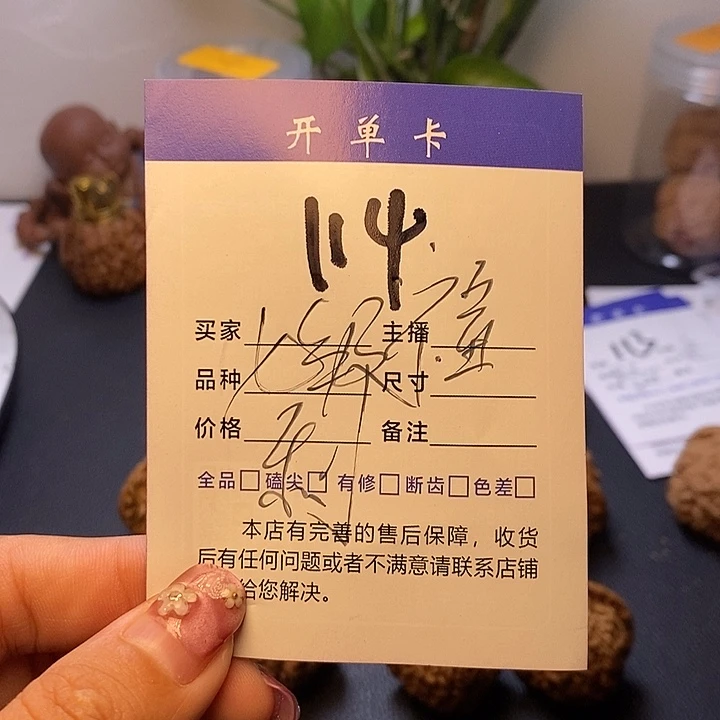 开单卡
114
买家 主播
品种 尺寸
价格 备注
全品□ 磕尖□ 有修□ 断齿□ 色差□
本店有完善的售后保障，收货
后有任何问题或者不满意请联系店铺
给您解决。